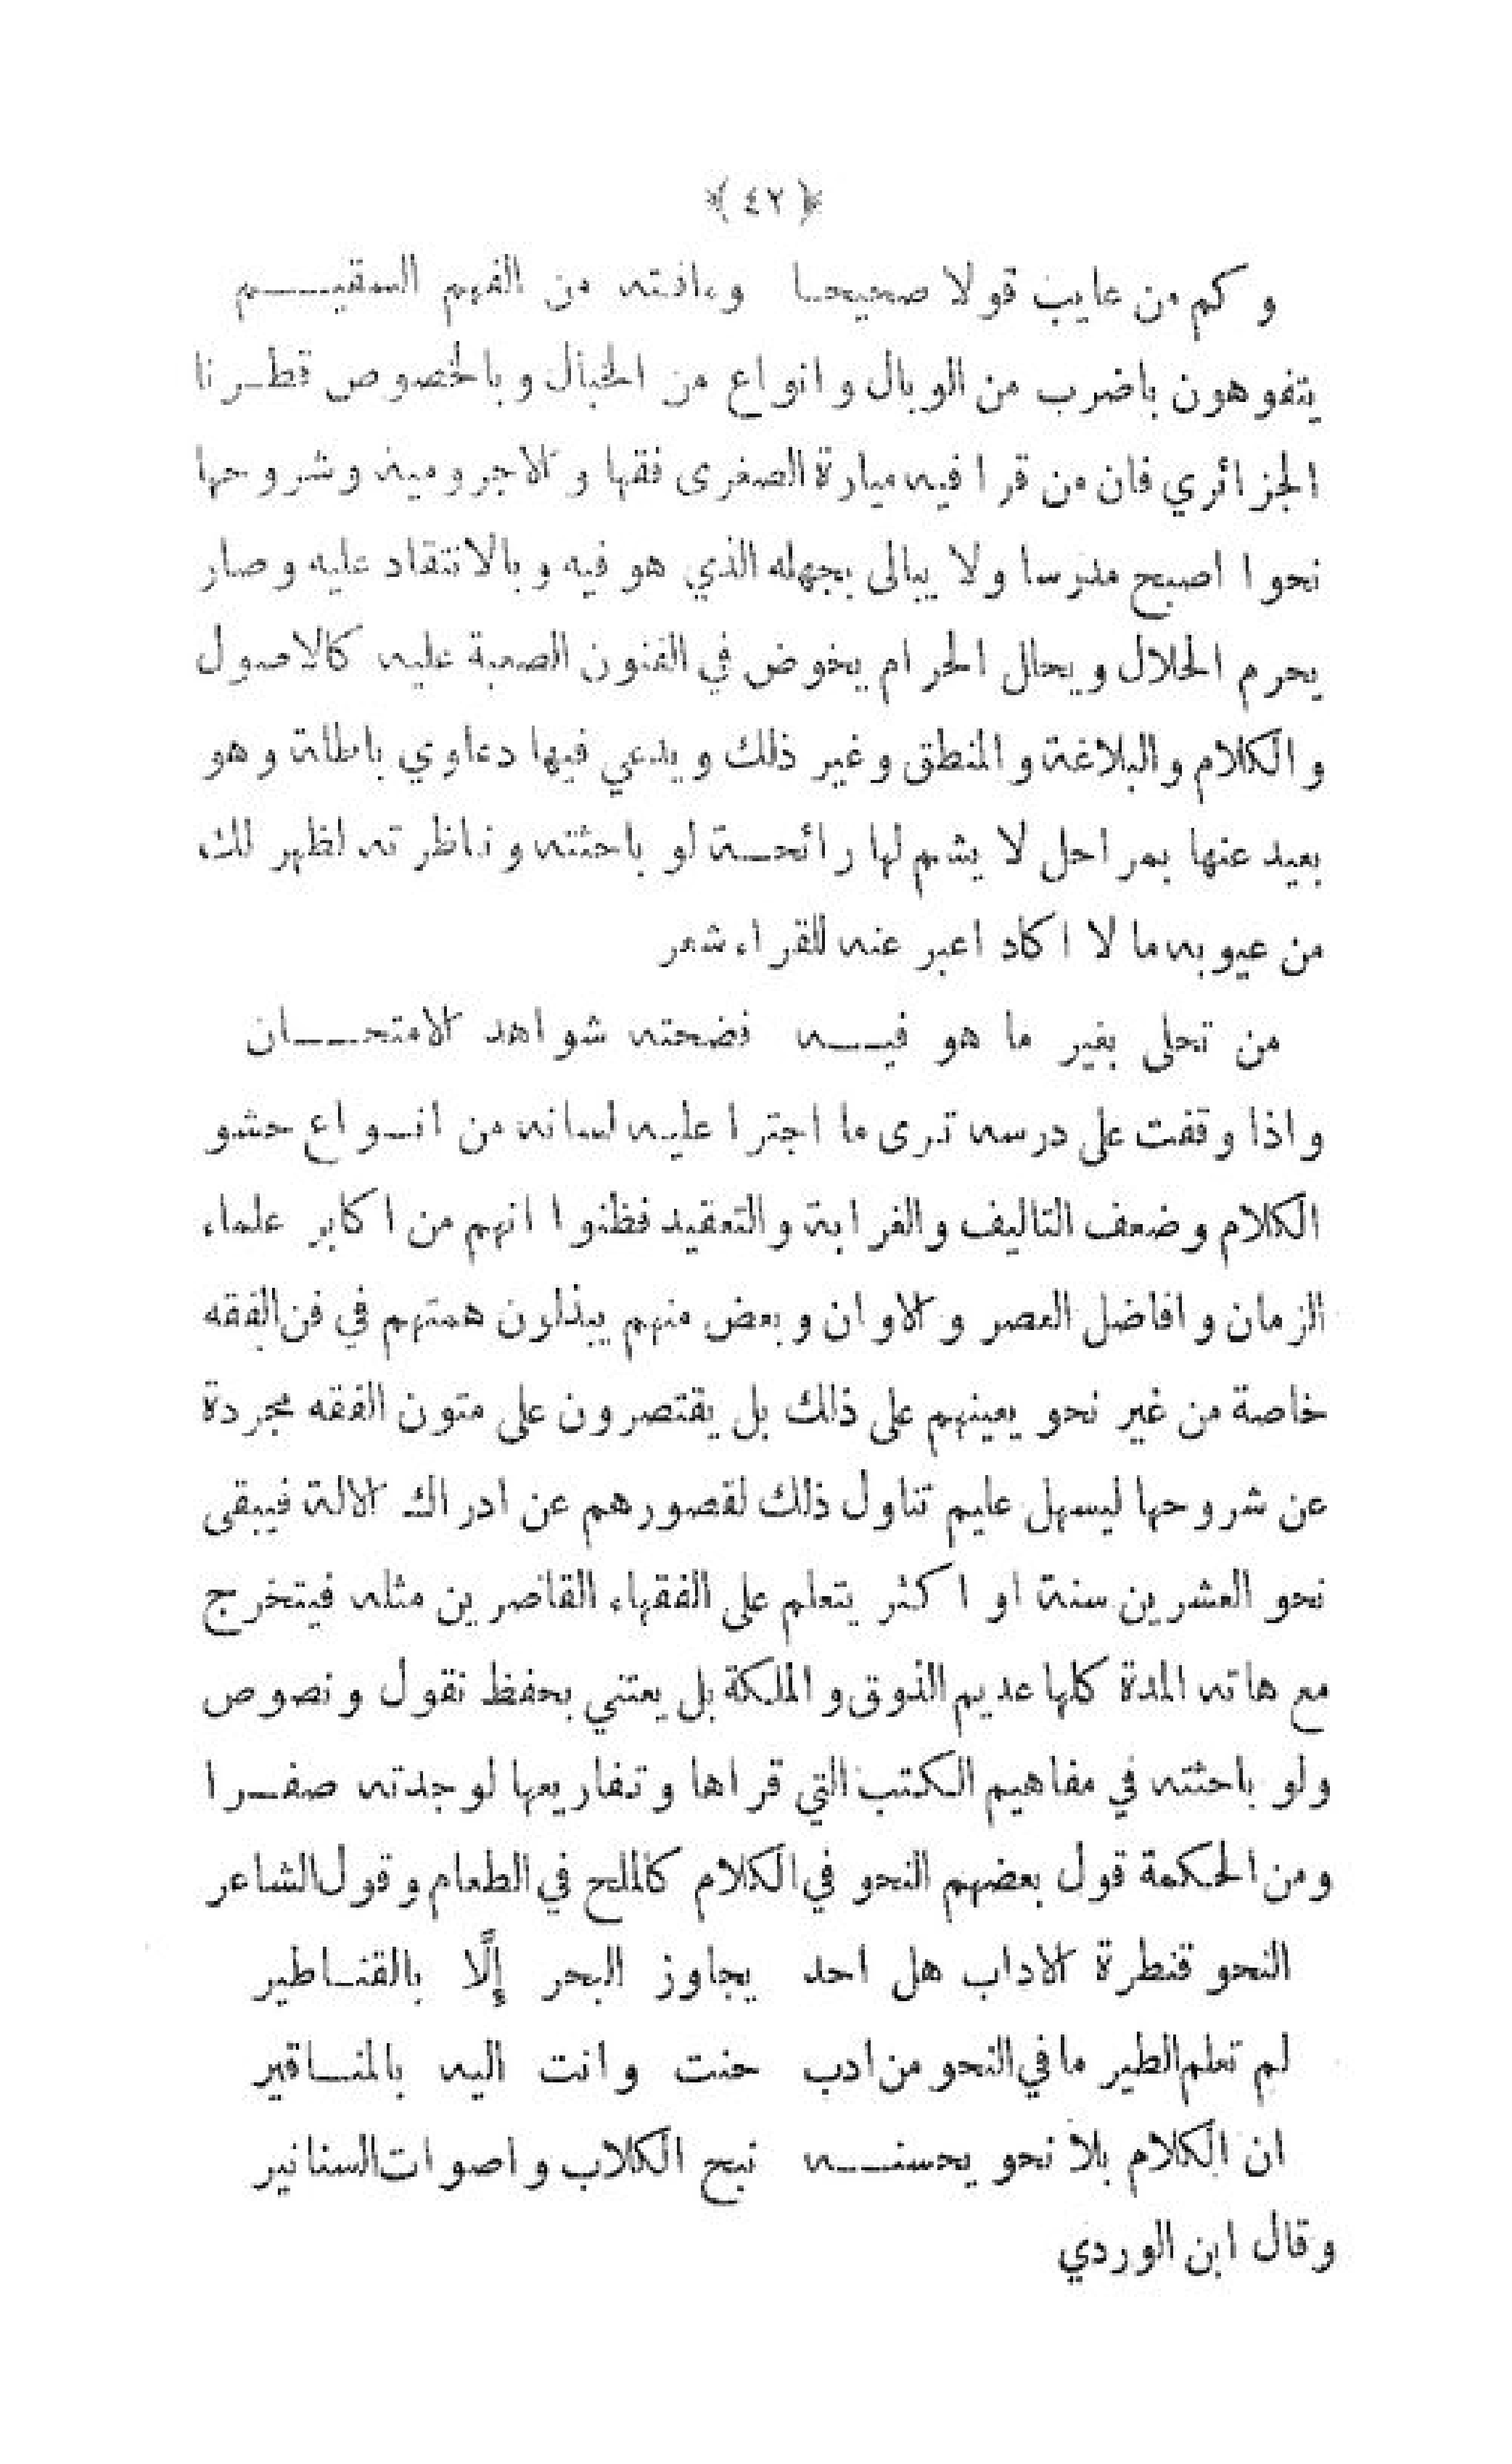 ﴿ ٤٢ ﴾
وكم من عايب قولا صحيحا وءافته من الفهم السقيـــم
يتفوهون باضرب من الوبال وانواع من الخبال وبالخصوص قطـرنا
الجزائري فان من قرا فيه ميارة الصغرى فقها والاجرومية وشروحها
نحوا اصبح مدرسا ولا يبالى بجهله الذي هو فيه وبالانتقاد عليه وصار
يحرم الحلال ويحلل الحرام يخوض في الفنون الصعبة عليه كالاصول
والكلام والبلاغة والمنطق وغير ذلك ويدعي فيها دعاوي باطلة وهو
بعيد عنها بمراحل لا يشم لها رائحـة لو باحثته وناظرته لظهر لك
من عيوبه ما لا اكاد اعبر عنه للقراء شعر
من تحلى بغير ما هو فيـــه فضحته شواهد الامتحـــان
واذا وقفت على درسه ترى ما اجترا عليه لسانه من انـواع حشو
الكلام وضعف التاليف والغرابة والتعقيد فظنوا انهم من اكابر علماء
الزمان وافاضل العصر والاوان وبعض منهم يبذلون همتهم في فن الفقه
خاصة من غير نحو يعينهم على ذلك بل يقتصرون على متون الفقه مجردة
عن شروحها ليسهل عليم تناول ذلك لقصورهم عن ادراك الالة فيبقى
نحو العشرين سنة او اكثر يتعلم على الفقهاء القاصرين مثله فيتخرج
مع هاته المدة كلها عديم الذوق والملكة بل يعتني بحفظ نقول ونصوص
ولو باحثته في مفاهيم الكتب التي قراها وتفاريعها لوجدته صفـرا
ومن الحكمة قول بعضهم النحو في الكلام كالملح في الطعام وقول الشاعر
النحو قنطرة الاداب هل احد يجاوز البحر إلَّا بالقنـاطير
لم تعلم الطير ما في النحو من ادب حنت وانت اليه بالمنـاقير
ان الكلام بلا نحو يحسنـــه نبح الكلاب واصوات السنانير
وقال ابن الوردي